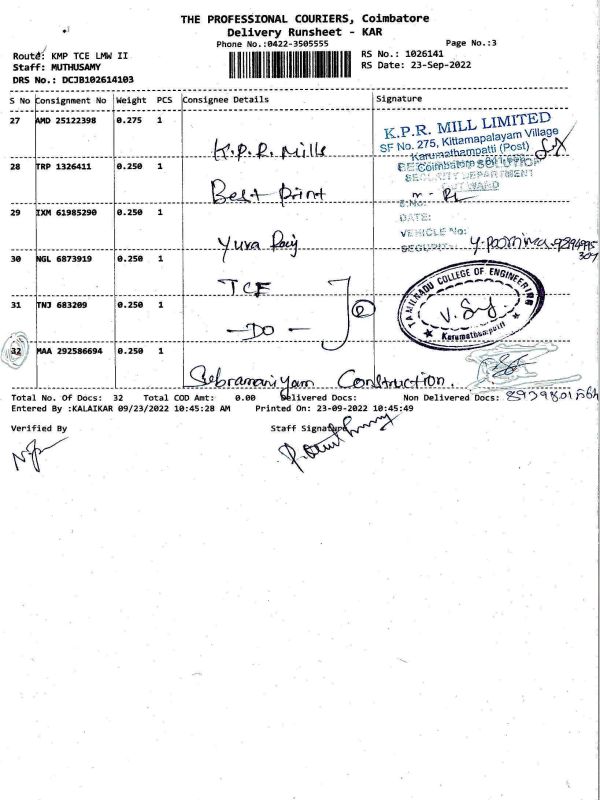 THE PROFESSIONAL COURIERS, Coimbatore
Delivery Runsheet - KAR
Phone No.:0422-3505555
Page No.:3
Route: KMP TCE LMW II
RS No.: 1026141
Staff: MUTHUSAMY
RS Date: 23-Sep-2022
DRS No.: DCJB102614103
S No Consignment No Weight PCS Consignee Details Signature
27 AMD 25122398 0.275 1 K.P.R. Mills
K.P.R. MILL LIMITED
SF No. 275, Kittamapalayam Village
Karumathampatti (Post)
Coimbatore
28 TRP 1326411 0.250 1 Best print
SECURITY DEPARTMENT
29 IXM 61985290 0.250 1 Yuva Raj
DATE:
VEHICLE No:
30 NGL 6873919 0.250 1 TCE
TAMILNADU COLLEGE OF ENGINEERING
Karumathampatti
31 TNJ 683209 0.250 1 - DO - 2
32 MAA 292586694 0.250 1 Subramaniyam Construction.
Total No. Of Docs: 32 Total COD Amt: 0.00 Delivered Docs: Non Delivered Docs:
Entered By :KALAIKAR 09/23/2022 10:45:28 AM Printed On: 23-09-2022 10:45:49
Verified By Staff Signature